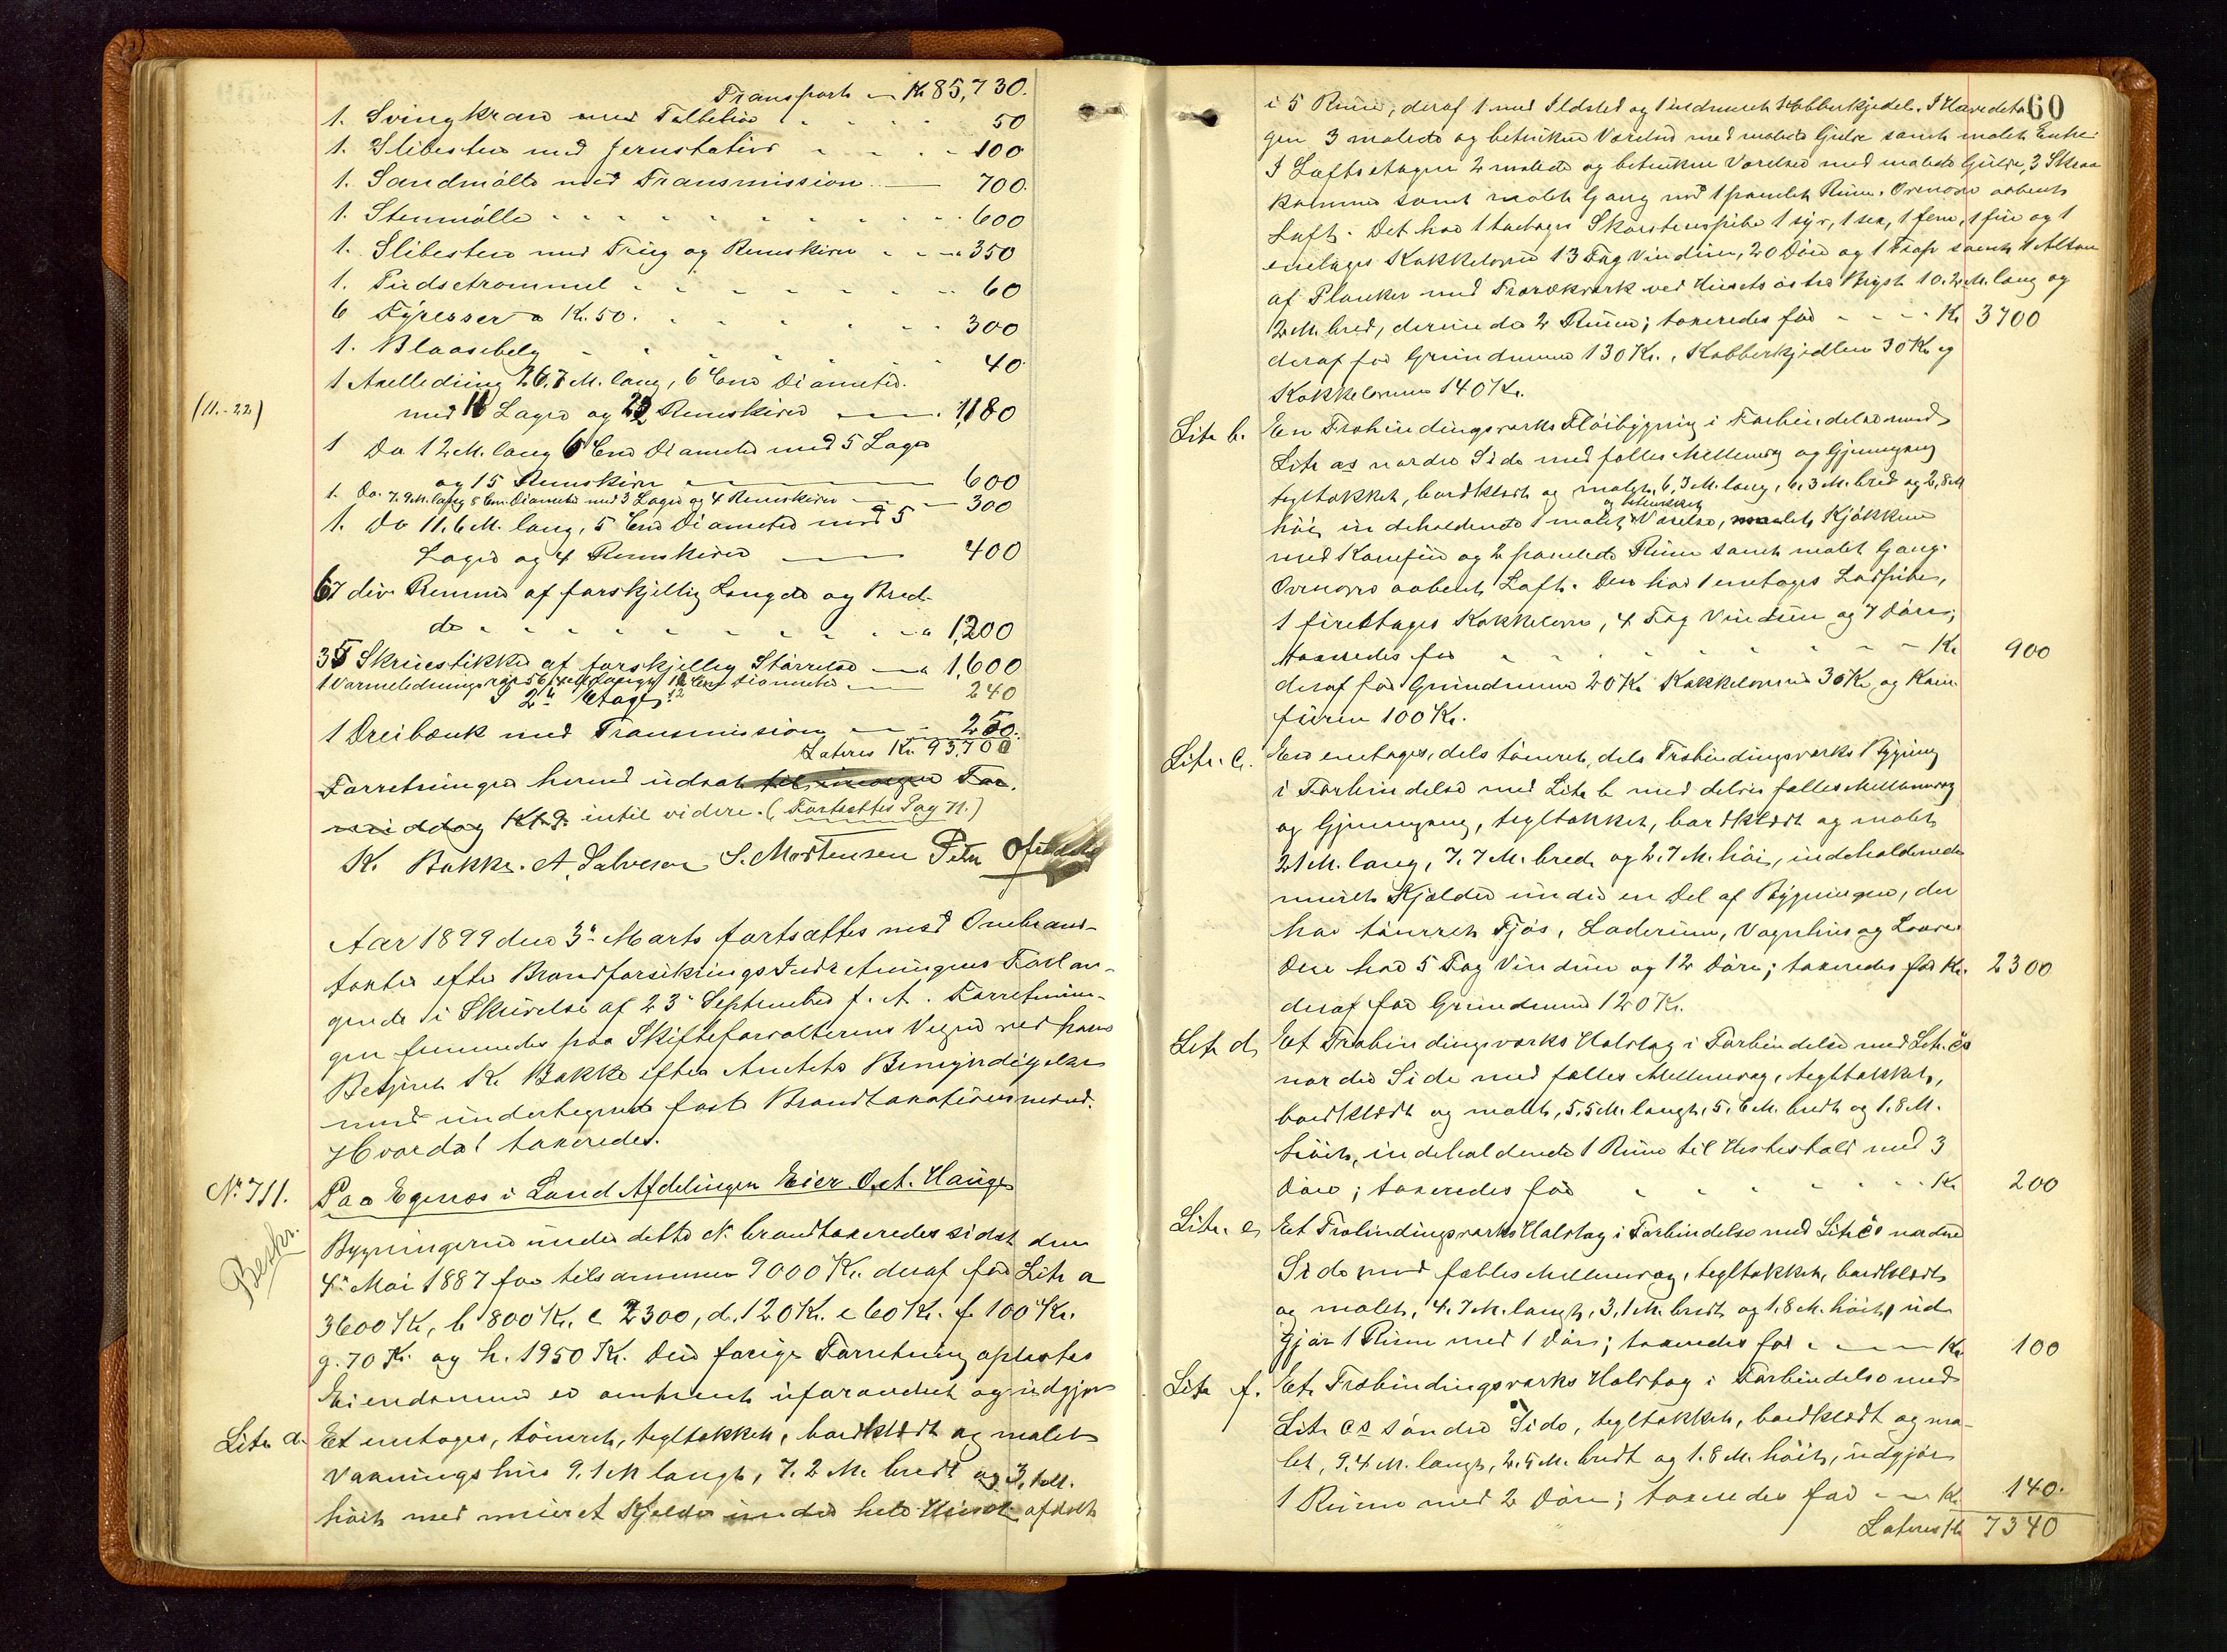 Transport - Kr 85,730.
1. Svingkran med Talbehør 50
1. Slibesten med Jernstativ 100
1. Sandmølle med Transmission 700.
1. Stenmølle 600
1. Slibesten med Trug og Remskive 350
1. Pudsetrommel 60
6 Fyresser a Kr. 50. 300
1. Blaasebelg 40
1 Axelledning 26,7 M. lang, 6 Cm Diameter
(11.-22)
med 11 Lager og 22 Remskiver 1,180
1 Do 12 M. lang 6 Cm Diameter med 5 Lager
og 15 Remskiver 600
1. Do. 7.9 M. lang 5 Cm. Diameter med 3 Lager og 4 Remskiver 300
1. Do 11,6 M. lang, 5 Cm Diameter med 5
Lager og 4 Remskiver 400
67 div Remme af forskjellig Længde og Bred-
de 1,200
35 Skruestikker af forskjellig Størrelse 1,600
1 Varmeledningsrør langt 12 Cm Diameter 240
I 2n Etage:
1 Dreibænk med Transmission 250.
Lateris Kr. 93,700
Forretningen herved udsat til imorgen For-
middag Kl. 9. intil videre. (Fortsættes Pag 71.)
K. Bakke. A. Salvesen S. Mortensen Peter
Aar 1899 den 3die Marts fortsattes med Ombrand-
taxter efter Brandforsikrings Indretningens Forlan-
gende i Skrivelse af 23de September f. A. Forretnin-
gen fremmedes paa Skifteforvalterens Vegne ved hans
Betjent K. Bakke efter Amtets Bemyndigelse
med undertegnede faste Brandtaxationsmænd.
Hvorda! taxeredes.
No 711. Paa Egenæs i Land Afdelingen Eier Ost. Hauge
Beskr.
Bygningerne under dette No brandtaxeredes sidst den
4de Mai 1887 for tilsammen 9000 Kr. deraf for Litr a
3600 Kr, b 800 Kr. c 2300, d. 120 Kr. e 60 Kr. f. 100 Kr.
g. 70 Kr. og h. 1950 Kr. Den forrige Forretning oplæstes
Eiendommen er omtrent uforandret og udgjør
Litr a. Et enetages, tømret, tegltækket, bordklædt og malet
Vaaningshus 9.1 M langt, 7.2 M. bredt og 3,1 M.
høit med muret Kjelder under hele Huset afdelt
60
i 5 Rum, deraf 1 med Ildsted og 1 indmuret Kobberkjedel. I Hovedeta-
gen 3 malede og betrukne Værelser med malede Gulve samt malet Entre
I Loftsetagen 2 malede og betrukne Værelser med malede Gulve, 3 Skraa
kammer samt malet Gang med 1 panelet Rum. Ovenover aabent
Loft. Det har 1 toetages Skorstenspibe 1 syv, 1 sex, 1 fem, 1 fire og 1
enetages Kakkelovne 13 Fag Vinduer, 20 Døre og 1 Trap samt 1 Altan
af Planker med Trærækværk ved Husets østre Bryst 10.2 M. lang og
2 M. bred, derunder 2 Rum; taxeredes for Kr 3700
deraf for Grundmur 130 Kr., Kobberkjedlen 30 Kr og
Kakkelovnene 140 Kr.
Litr b. En Træbindingsværks Fløibygning i Forbindelse med
Litr as nordre Side med fælles Mellemvæg og Gjennemgang
tegltækket, bordklædt og malet, 6,3 M. lang, 6,3 M. bred og 2,8 M
høi, indeholdende 1 malet og betrukket Værelse, malet Kjøkken
med Komfur og 2 panelede Rum samt malet Gang.
Ovenover aabent Loft. Den har 1 enetages Ladpibe,
1 fireetages Kakkelovn, 4 Fag Vinduer og 7 Døre;
taxeredes for Kr. 900
deraf for Grundmur 20 Kr. Kakkelovnen 30 Kr. og Kom-
furen 100 Kr.
Litr. c. En enetages, dels tømret, dels Træbindingsværks Bygning
i Forbindelse med Litr b med delvis fælles Mellemvæg
og Gjennemgang, tegltækket, bordklædt og malet
21 M. lang, 7,7 M. bred og 2,7 M. høi, indeholdende
muret Kjelder under en Del af Bygningen, der
har tømret Fjøs, Laderum, Vognhus og Loave.
Den har 5 Fag Vinduer og 12 Døre; taxeredes for Kr. 2300
deraf for Grundmur 120 Kr.
Litr d. Et Træbindingsværks Halvtag i Forbindelse med Litr. cs
nordre Side med fælles Mellemvæg, tegltækket,
bordklædt og malet, 5,5 M. langt, 5,6 M. bredt og 1,8 M.
høit, indeholdende 1 Rum til Hestestald med 3
Døre; taxeredes for Kr 200
Litr. e. Et Træbindingsværks Halvtag i Forbindelse med Litr cs nordre
Side med fælles Mellemvæg, tegltækket, bordklædt
og malet, 4,7 M. langt, 3,1 M. bredt og 1,8 M. høit, ud-
gjør 1 Rum med 1 Dør; taxeredes for Kr. 100
Litr f. Et Træbindingsværks Halvtag i Forbindelse med
Litr cs søndre Side, tegltækket, bordklædt og ma-
let, 9,4 M. langt, 2,5 M. bredt og 1.8 M. høit, udgjør
1 Rum med 2 Døre; taxeredes for Kr. 140.
Lateris Kr 7340